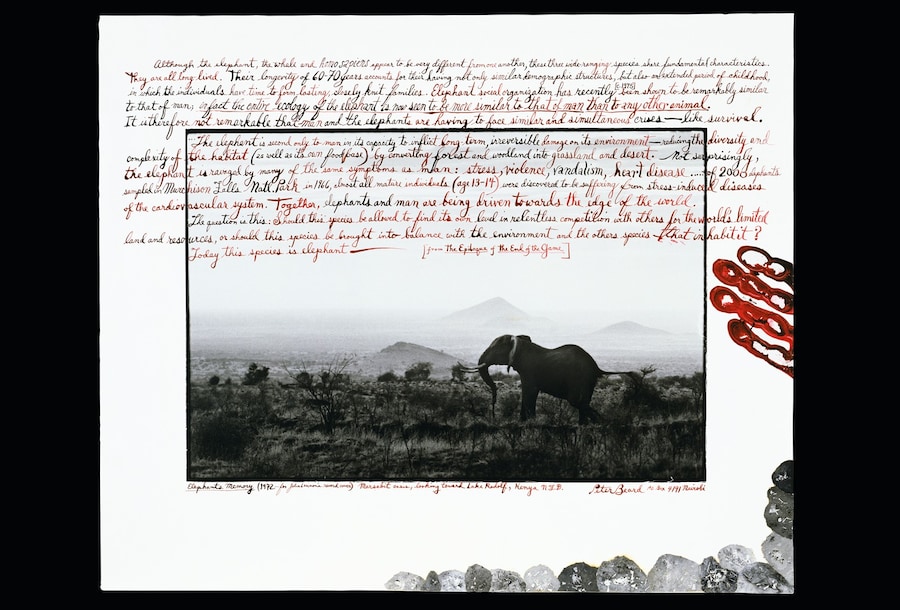 Although the elephant, the whale and homo sapiens appear to be very different from one another, these three wide-ranging species share fundamental characteristics.
They are all long-lived. Their longevity of 60-70 years accounts for their having not only similar demographic structures, but also an extended period of childhood,
in which the individuals have time to form lasting, closely knit families. Elephant social organization has recently been shown to be remarkably similar
to that of man; in fact the entire ecology of the elephant is now seen to be more similar to that of man than to any other animal.
It is therefore not remarkable that man and the elephants are having to face similar and simultaneous crises — like survival.
The elephant is second only to man in its capacity to inflict long-term, irreversible damage on its environment — reducing the diversity and
complexity of the habitat (as well as its own foodbase) by converting forest and woodland into grassland and desert. Not surprisingly,
the elephant is ravaged by many of the same symptoms as man: stress, violence, vandalism, heart disease .... of 2000 elephants
sampled in Murchison Falls Natl. Park in 1966, almost all mature individuals (age 13-14) were discovered to be suffering from stress-induced diseases
of the cardiovascular system. Together, elephants and man are being driven towards the edge of the world.
The question is this: Should this species be allowed to find its own level in relentless competition with others for the world's limited
land and resources, or should this species be brought into balance with the environment and the others species that inhabit it?
Today this species is elephant
[from The Epilogue of The End of the Game]
Elephants Memory (1972 for) looking toward Lake Rudolf, Kenya N.F.D.
Peter Beard Nairobi